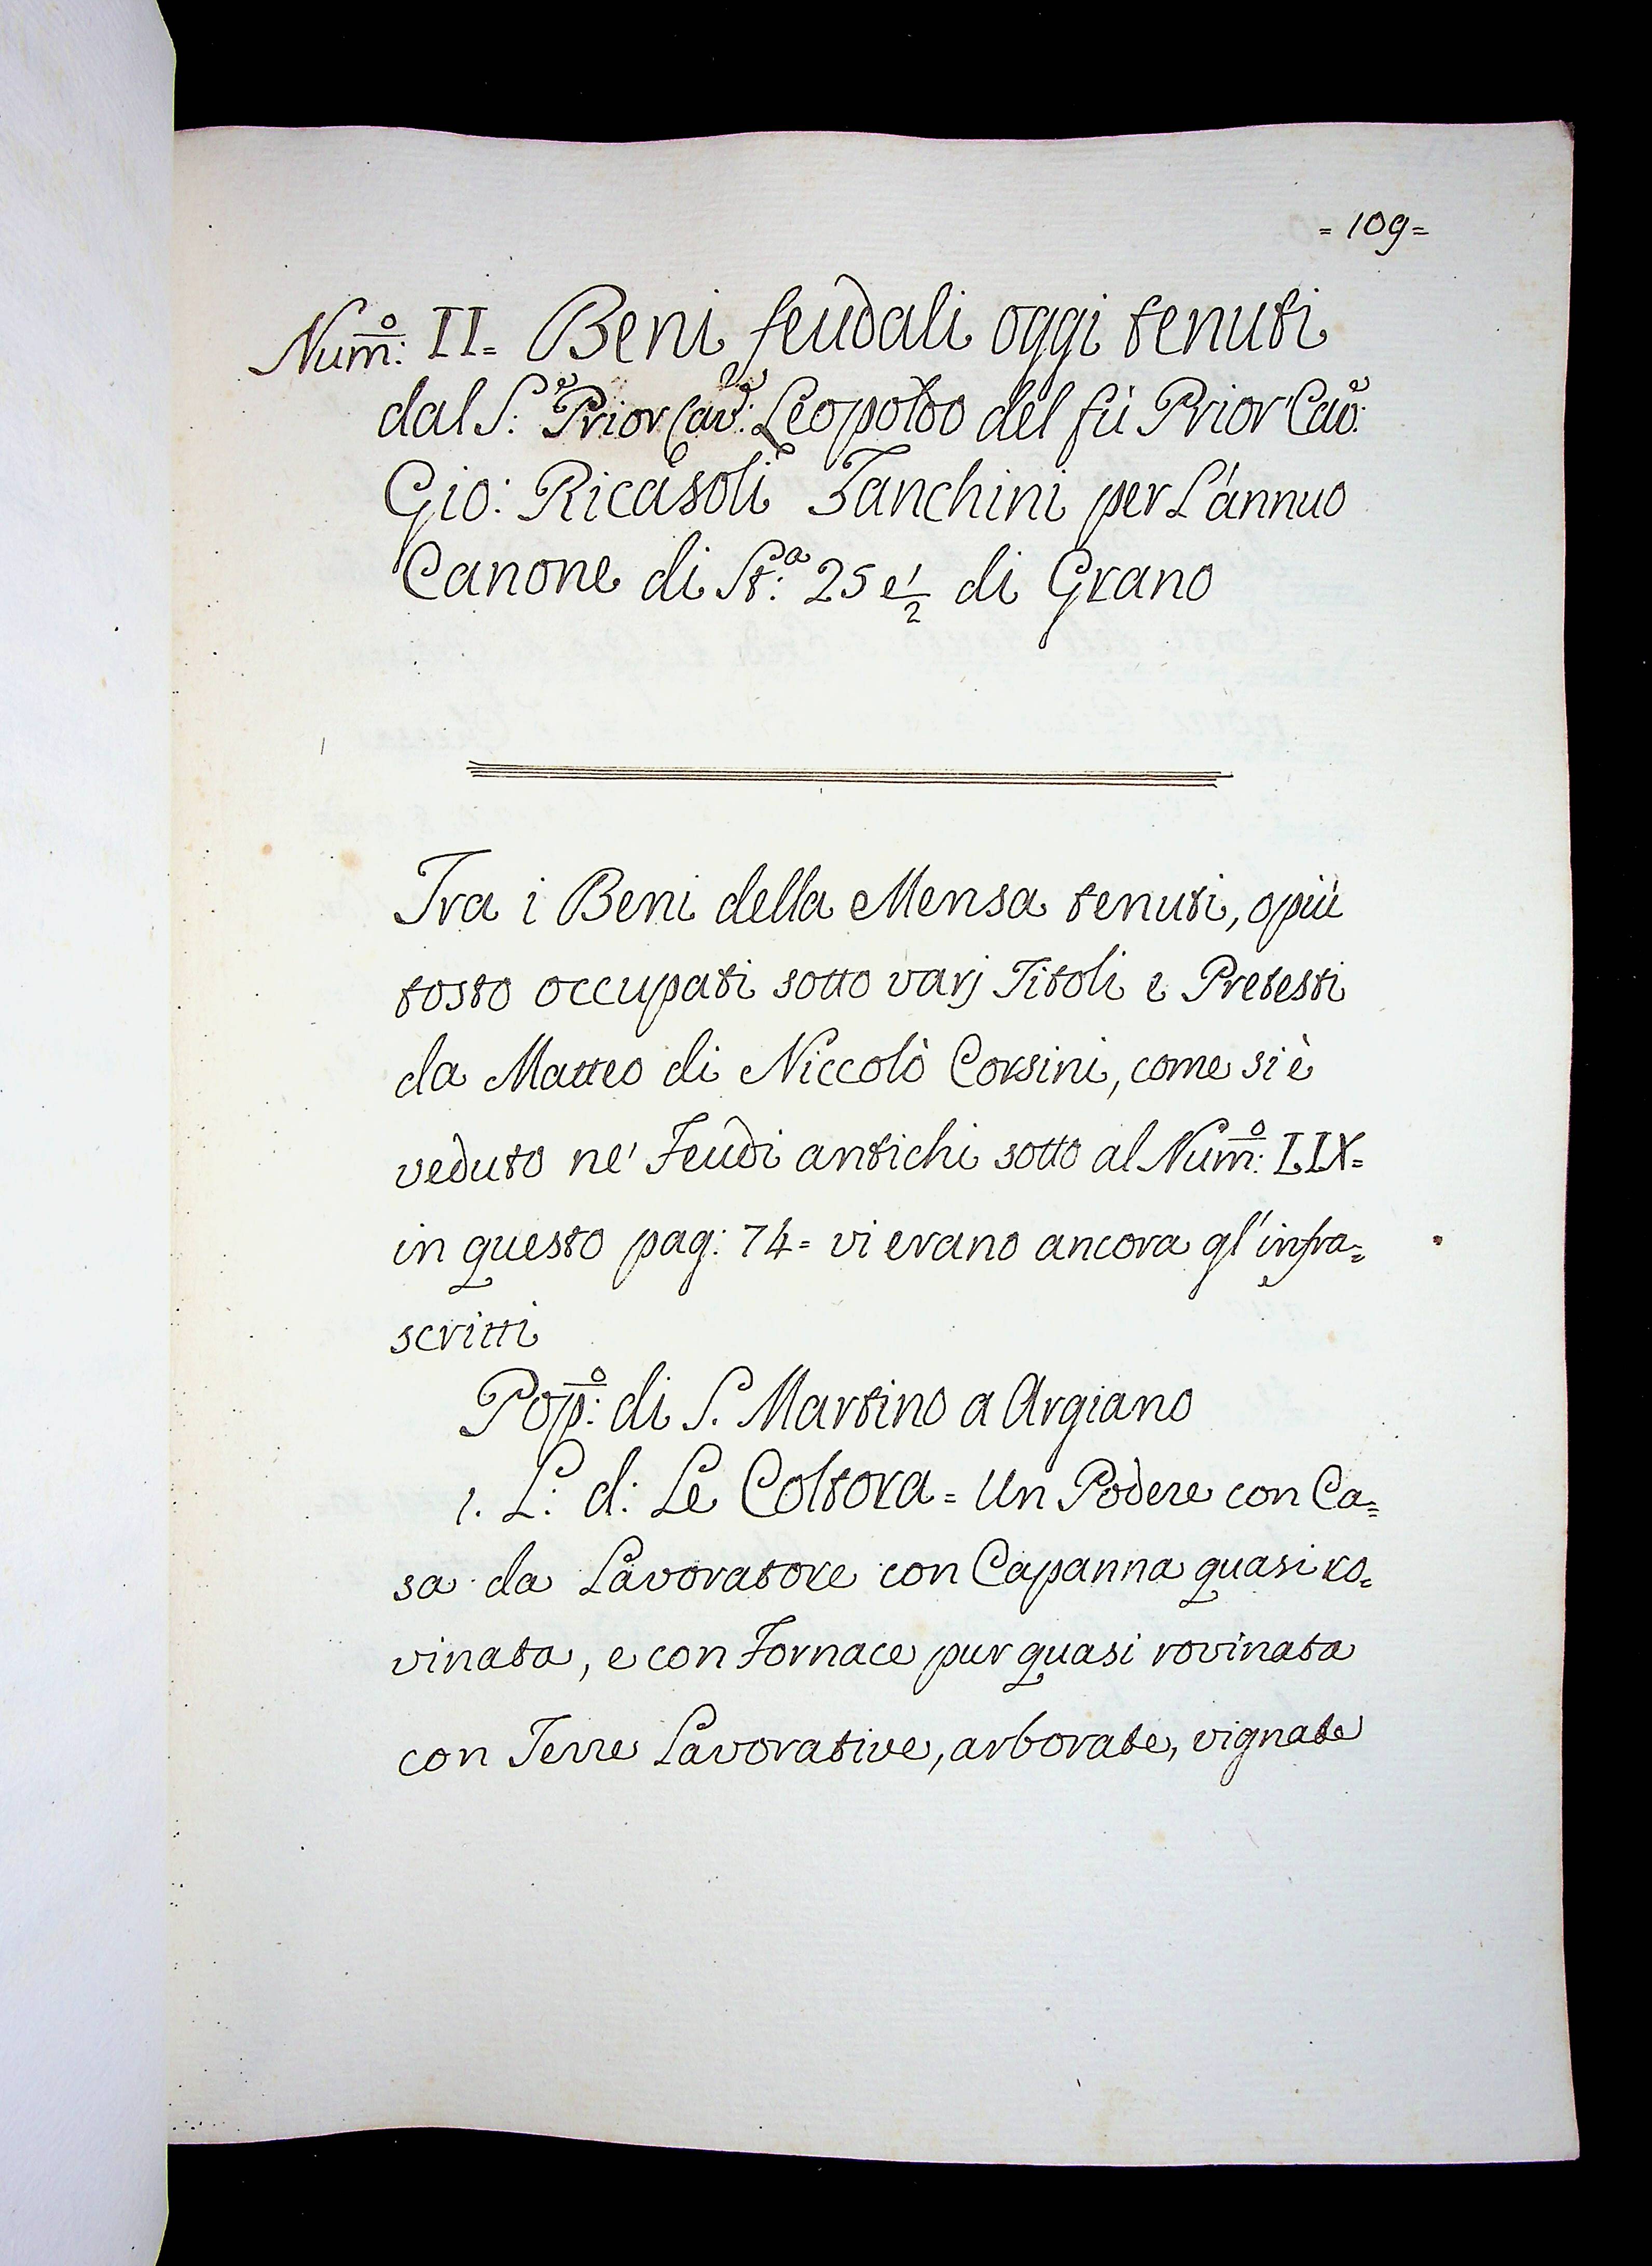 = 109 =
Num:º II = Beni feudali oggi tenuti
dal S:ᵉ Prior Cav:ᵉ Leopoldo del fù Prior Cav:ᵉ
Gio: Ricasoli Zanchini per L'annuo
Canone di St:ᵃ 25 e ½ di Grano
Tra i Beni della Mensa tenuti, o più
tosto occupati sotto varj Titoli e Pretesti
da Matteo di Niccolò Corsini, come si è
veduto ne' Feudi antichi sotto al Num:º LIX =
in questo pag: 74 = vi erano ancora gl'infra=
scritti
Pop:º di S. Martino a Argiano
1. L: d: Le Coltora = Un Podere con Ca=
sa da Lavoratore con Capanna quasi ro=
vinata, e con Fornace pur quasi rovinata
con Terre Lavorative, arborate, vignate